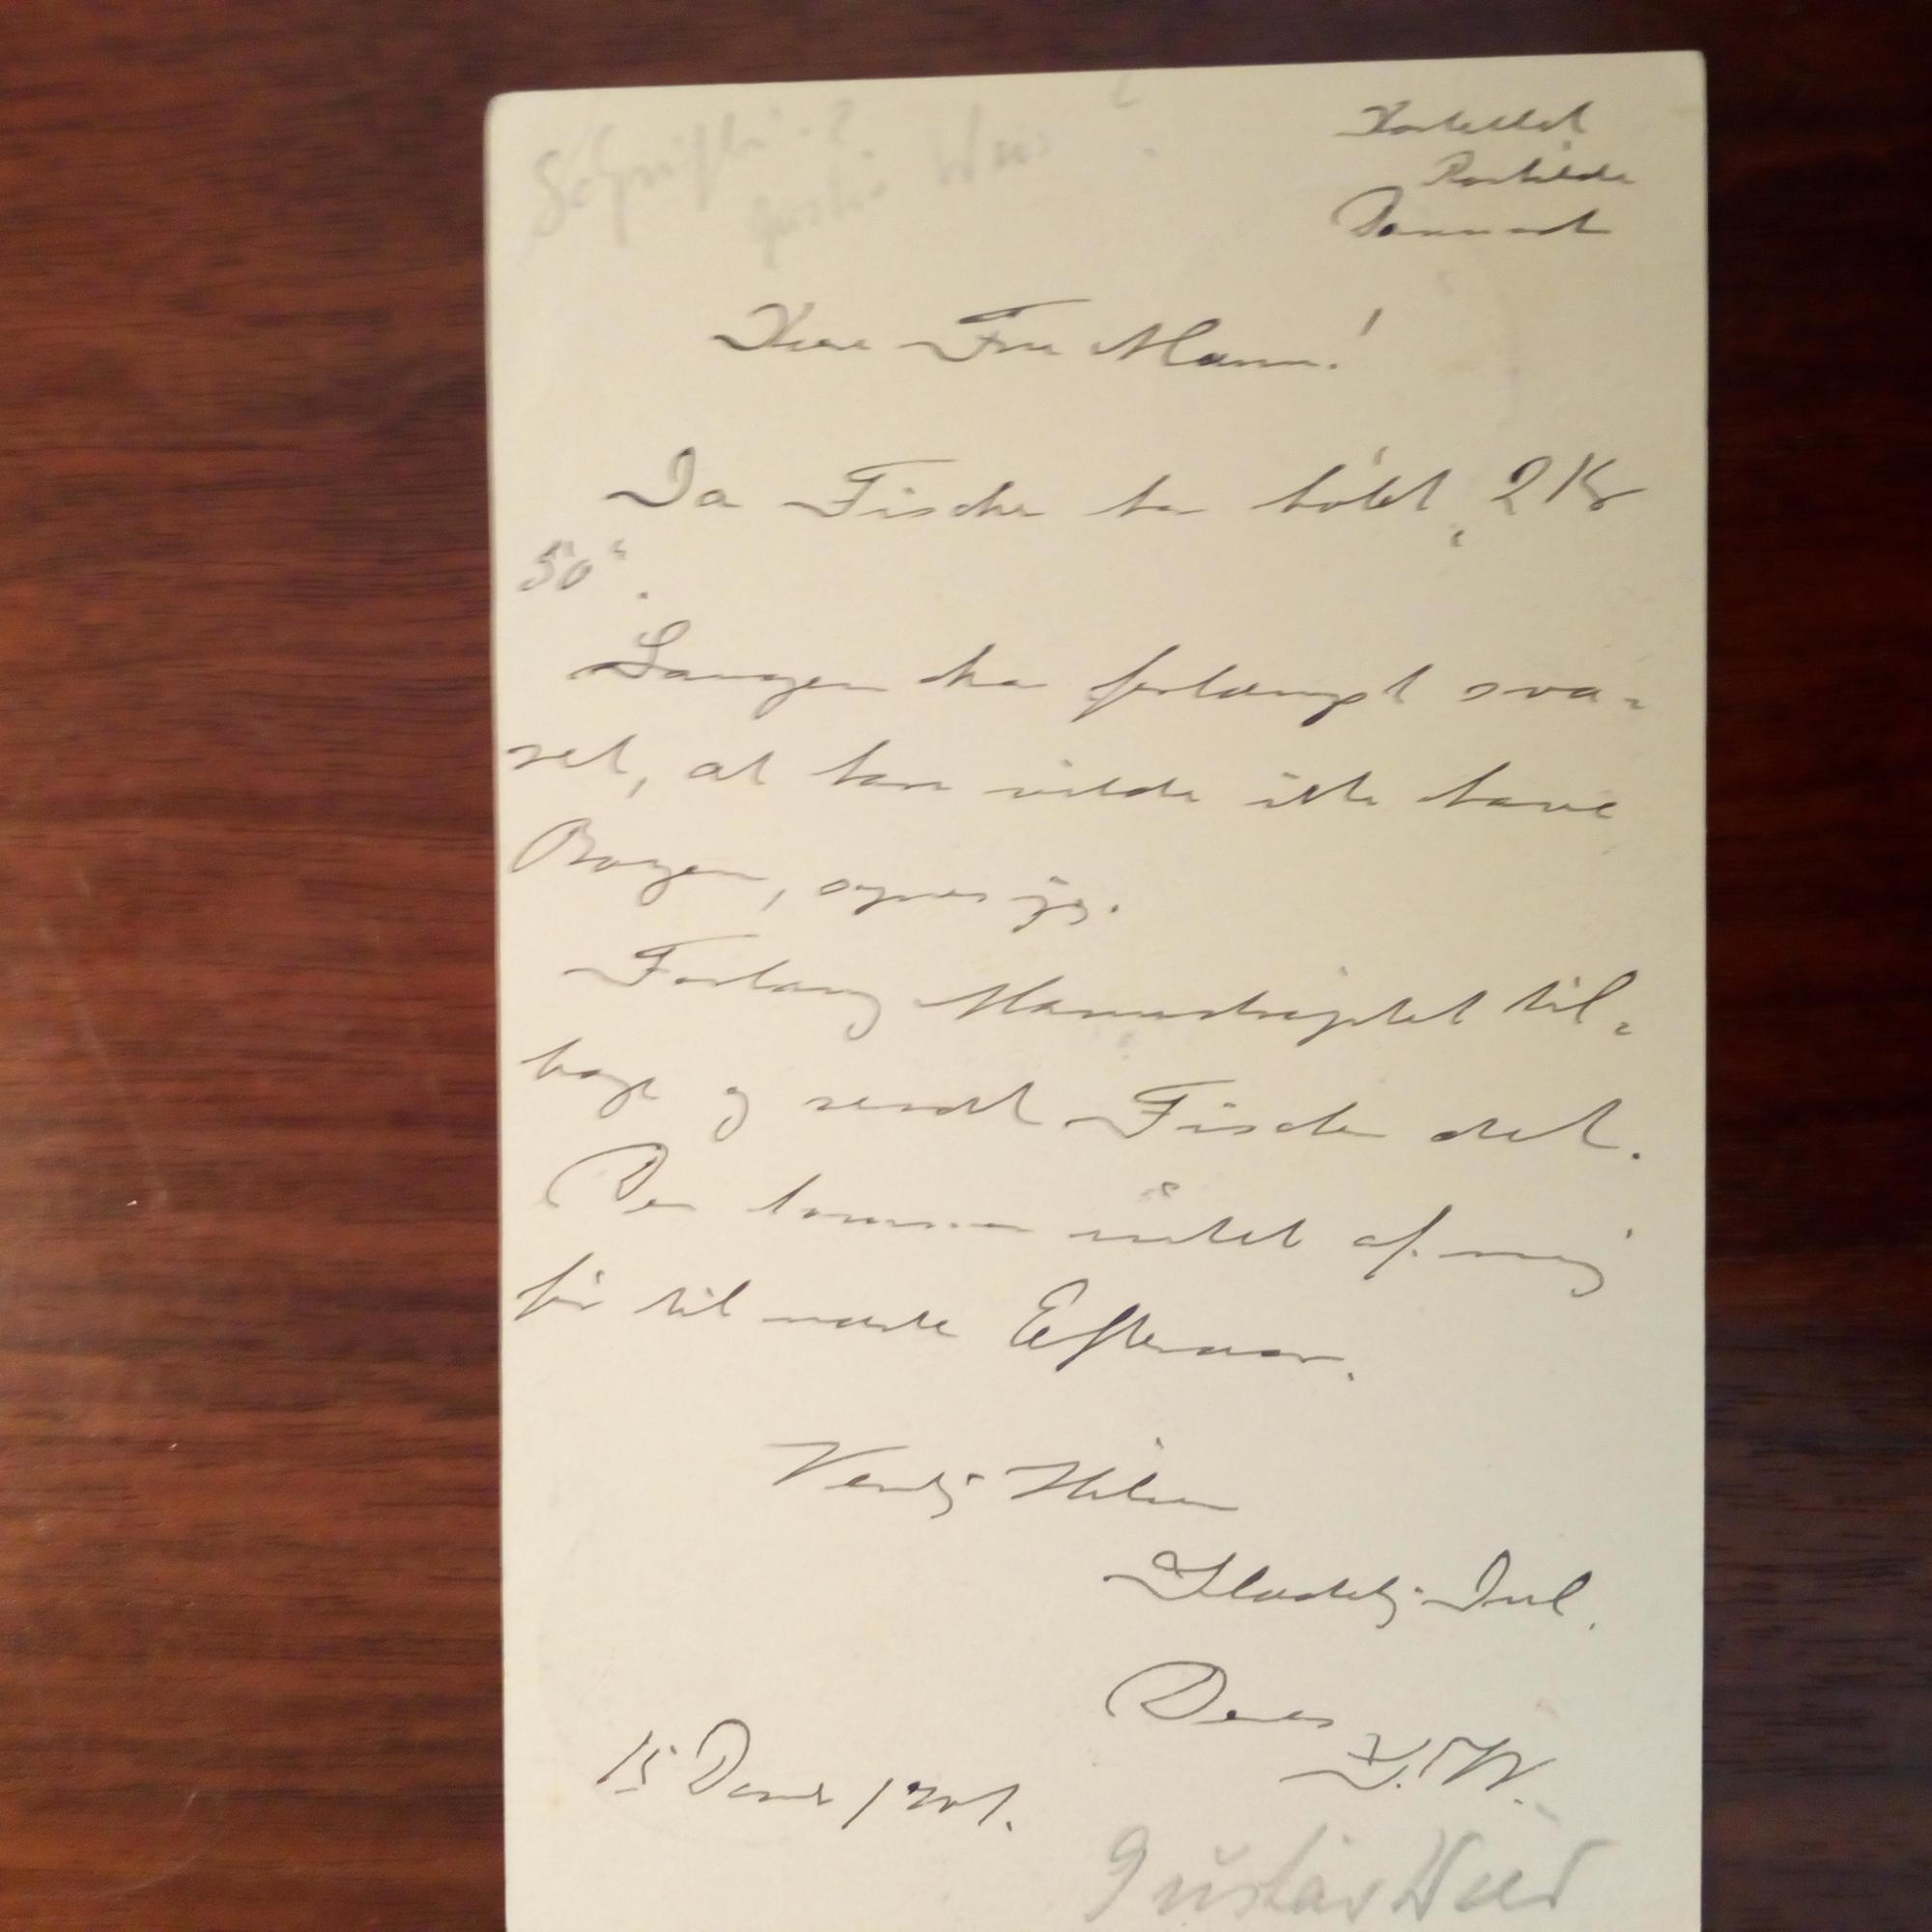 Kastellet
Roskilde
Danmark
Kære Fru Mann!
Ja Fischer har købt, 2 Kr
50".
Langen har forlængst sva-
ret, at han vilde ikke have
Bogen, synes jeg.
Forlang Manuskriptet til-
bage og sendt Fischer det.
Der kommer intet af mig
før til næste Efteraar.
Venlig Hilsen
Glædelig Jul.
Deres
G. W.
15 Decemb 1901.
Gustav Wied